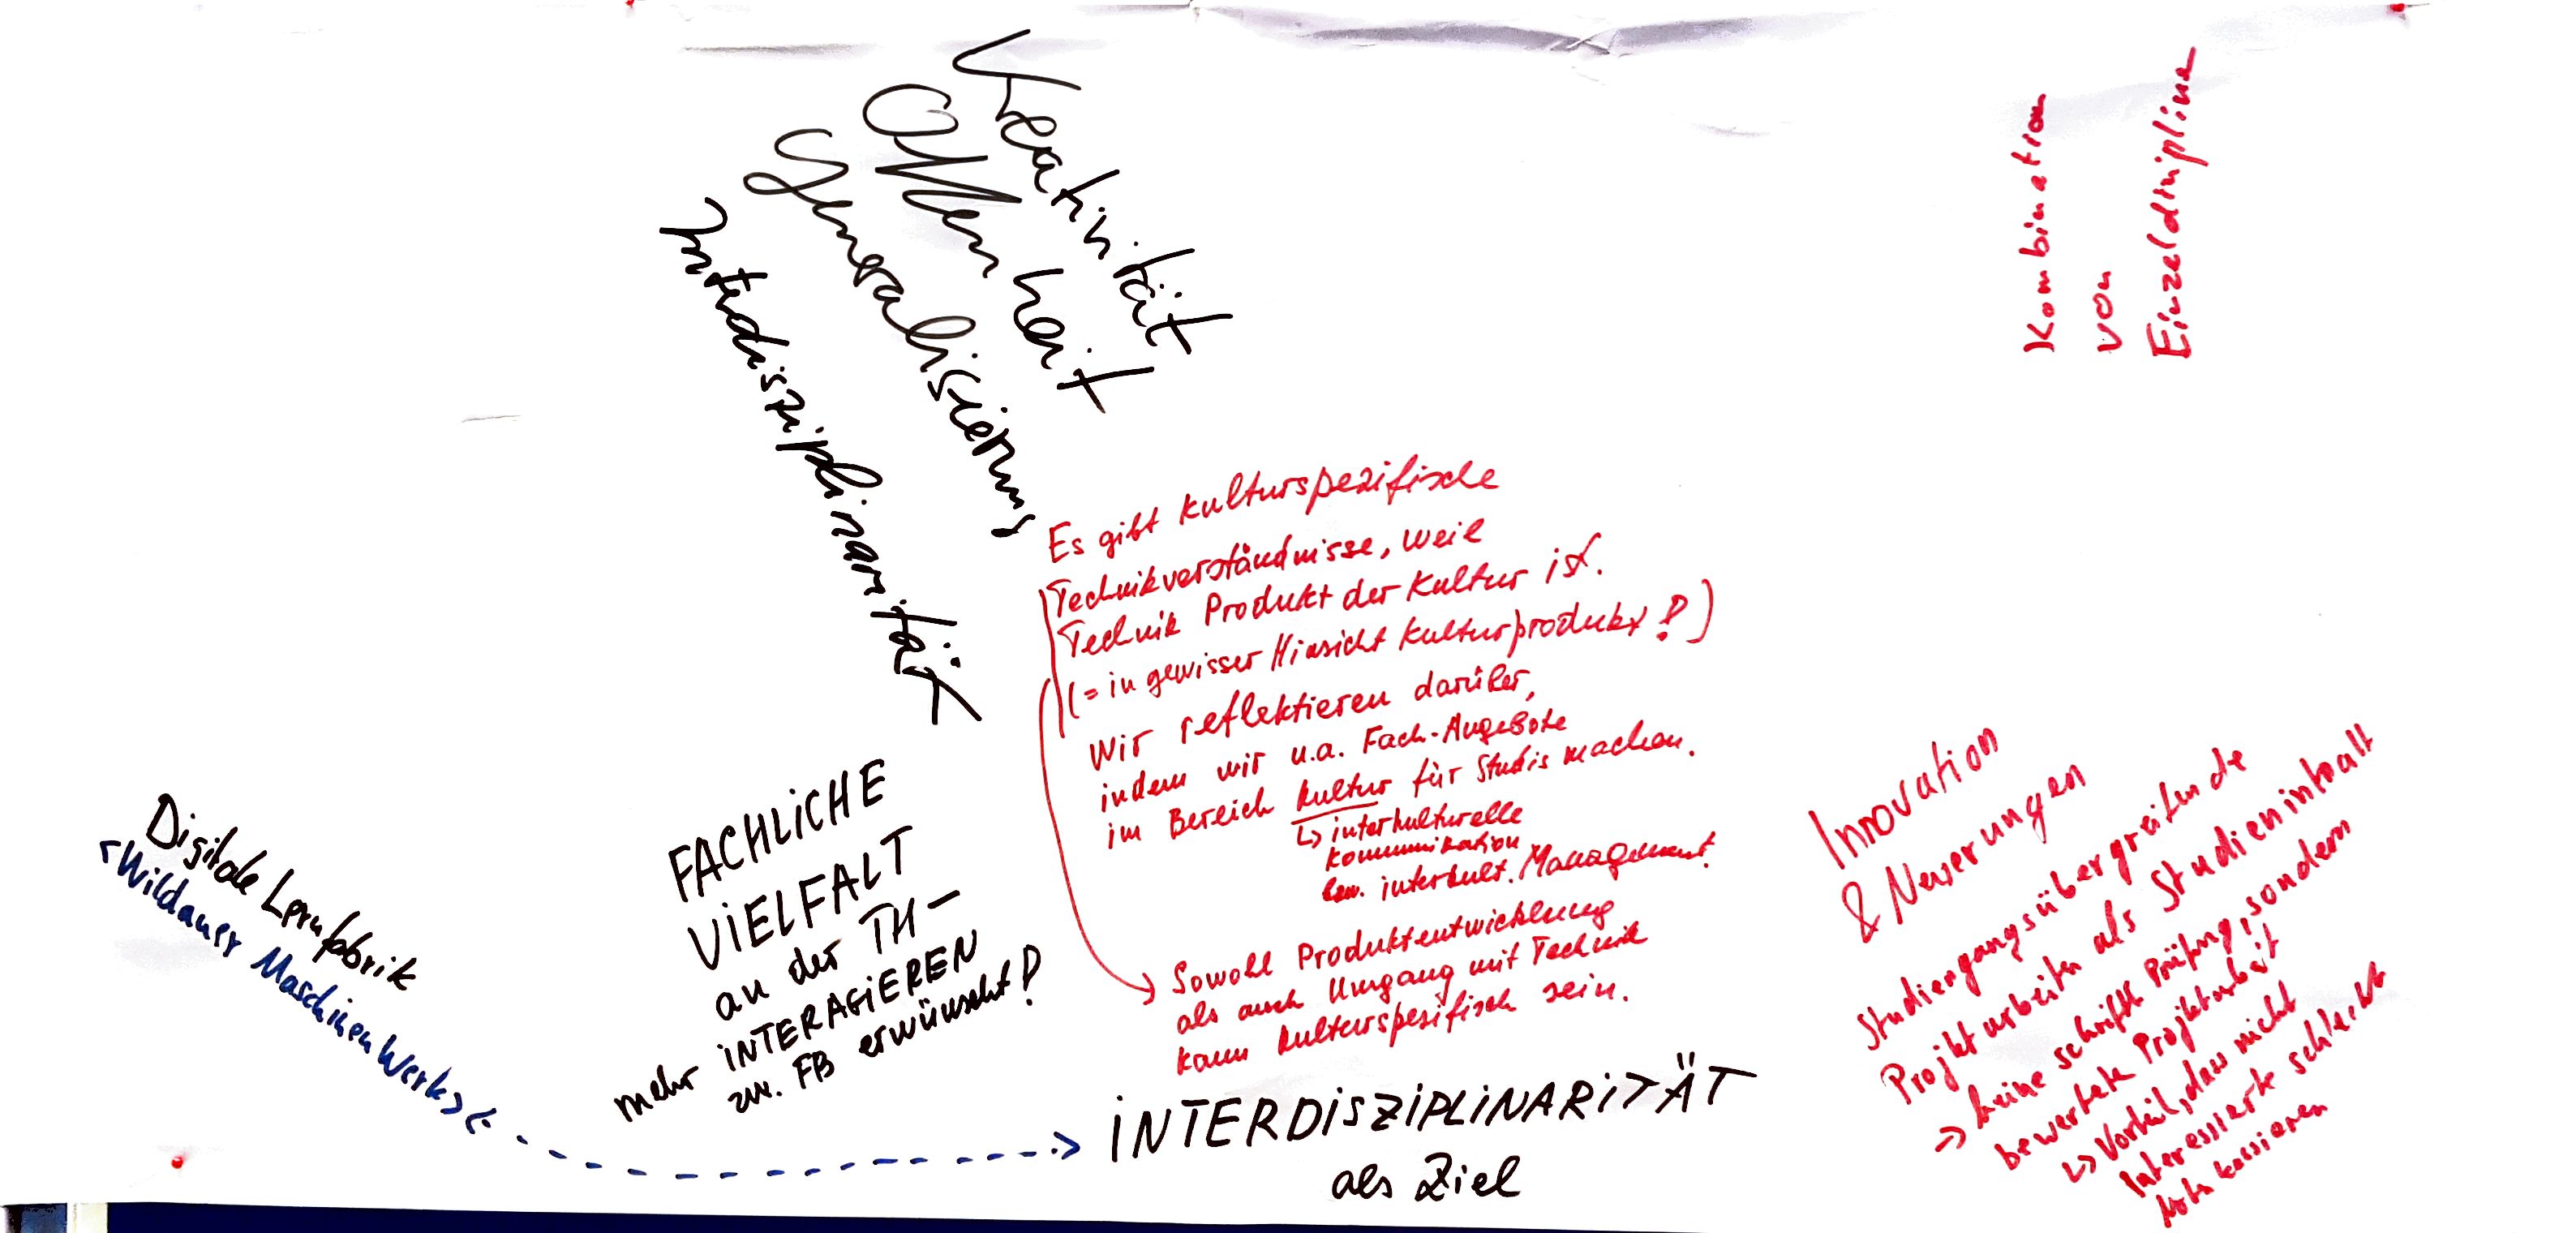 Kreativität
Offenheit
Generalisierung
Interdisziplinarität
Kombination
von
Einzeldisziplinen
Es gibt kulturspezifische
Technikverständnisse, weil
Technik Produkt der Kultur ist.
(= in gewisser Hinsicht Kulturprodukt!)
Wir reflektieren darüber,
indem wir u.a. Fach-Angebote
im Bereich Kultur für Studis machen.
↳ interkulturelle
Kommunikation
bzw. interkult. Management.
Sowohl Produktentwicklung
als auch Umgang mit Technik
kann kulturspezifisch sein.
FACHLICHE
VIELFALT
an der TH –
mehr INTERAGIEREN
zw. FB erwünscht!
Digitale Lernfabrik
<Wildauer Maschinen Werke>
INTERDISZIPLINARITÄT
als Ziel
Innovation
& Neuerungen
Studiengangsübergreifende
Projektarbeiten als Studieninhalt
→ keine schriftl. Prüfung, sondern
bewertete Projektarbeit
↳ Vorteil, dass nicht
Interessierte schlechte
Noten kassieren